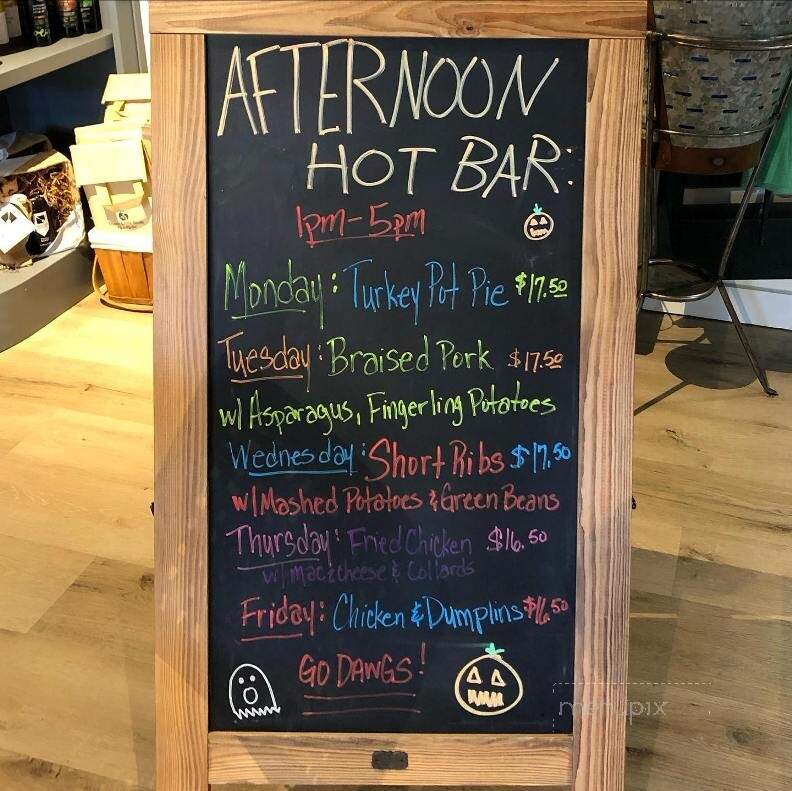 AFTERNOON
HOT BAR:
1pm-5pm
Monday: Turkey Pot Pie $17.50
Tuesday: Braised Pork $17.50
w/ Asparagus, Fingerling Potatoes
Wednesday: Short Ribs $17.50
w/ Mashed Potatoes & Green Beans
Thursday: Fried Chicken $16.50
w/ mac & cheese & Collards
Friday: Chicken & Dumplins $16.50
GO DAWGS!
menupix